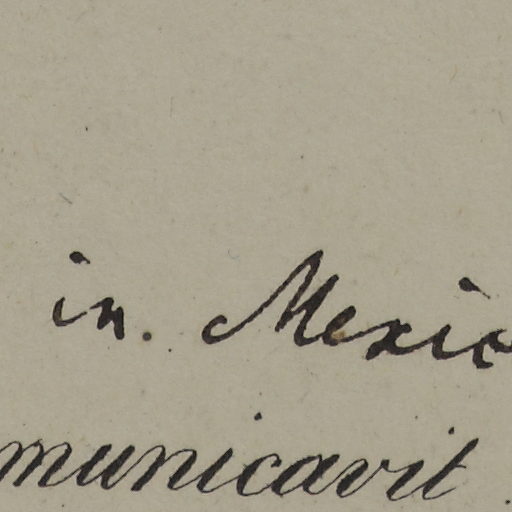 in. Mexic
municavit